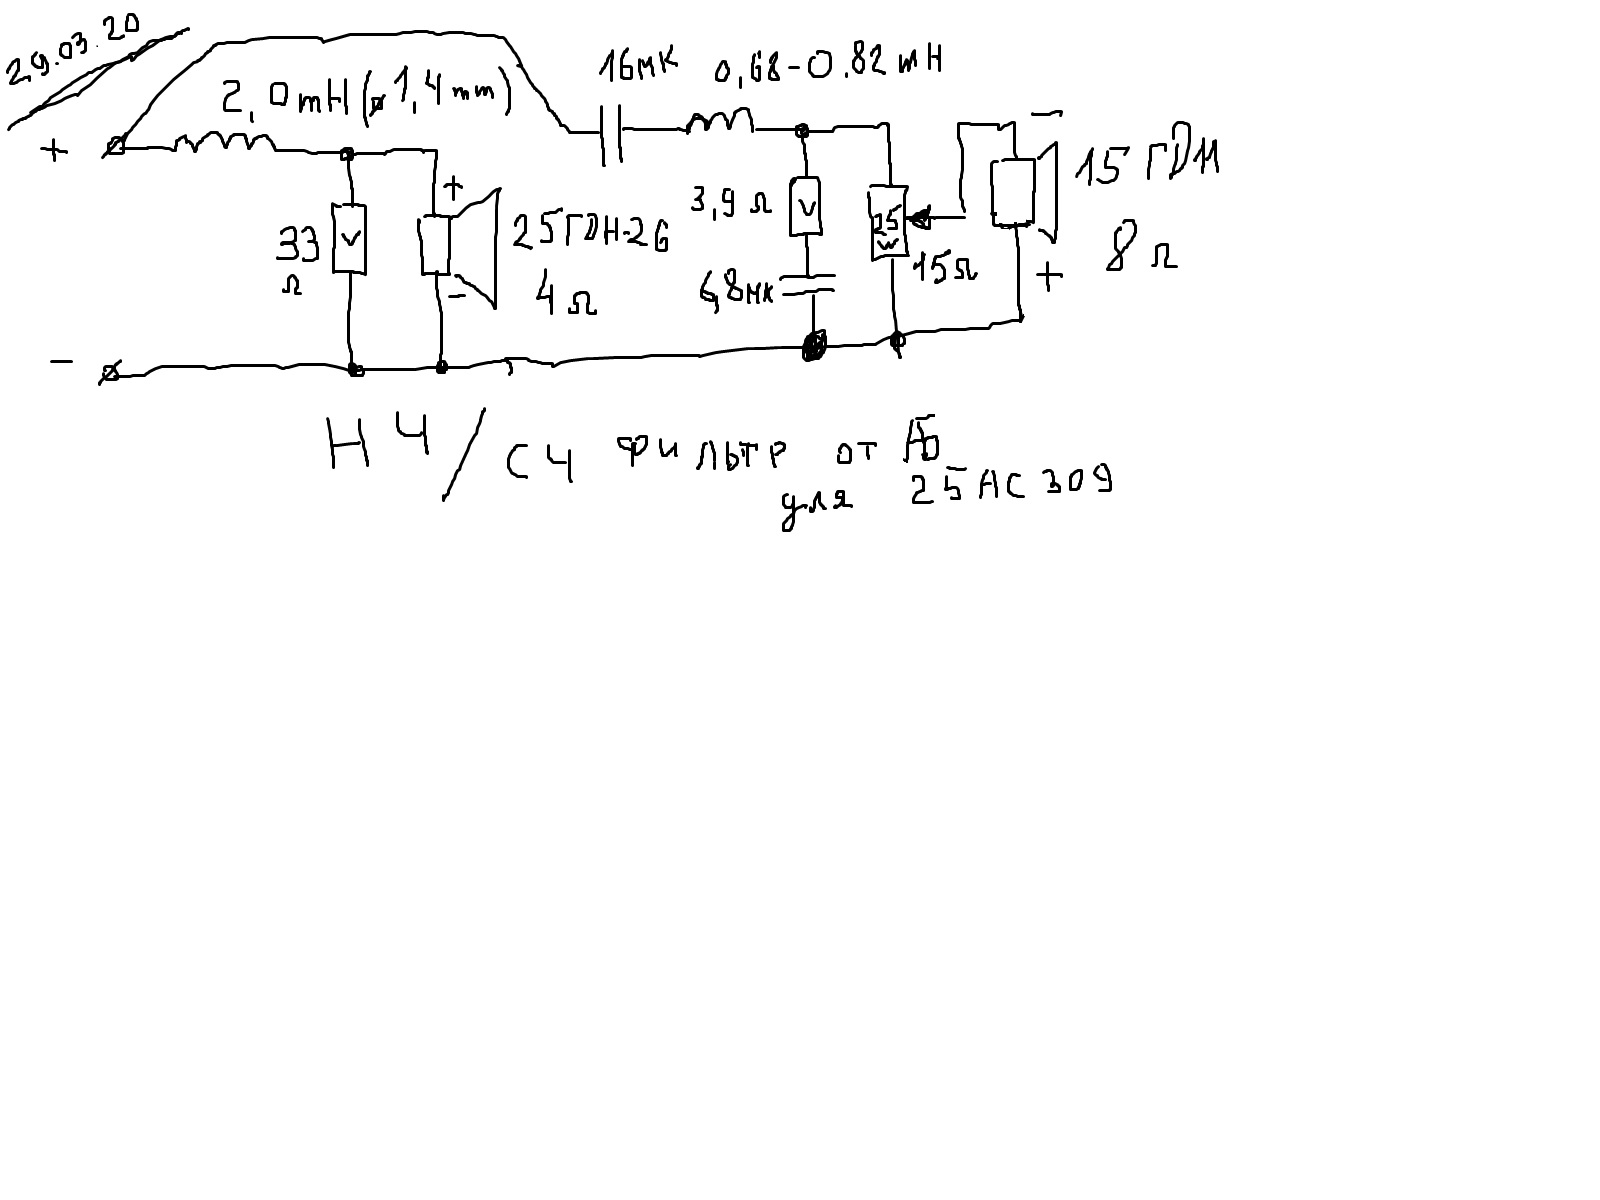 29.03.20
2,0mH(⌀1,4mm)
16мк
0,68-0.82mH
+
-
33
Ω
V
+
-
25ГДН-26
4Ω
3,9Ω
V
6,8мк
25
W
15Ω
-
+
15ГДН
8Ω
-
НЧ/СЧ Фильтр от АБ
для 25АС309